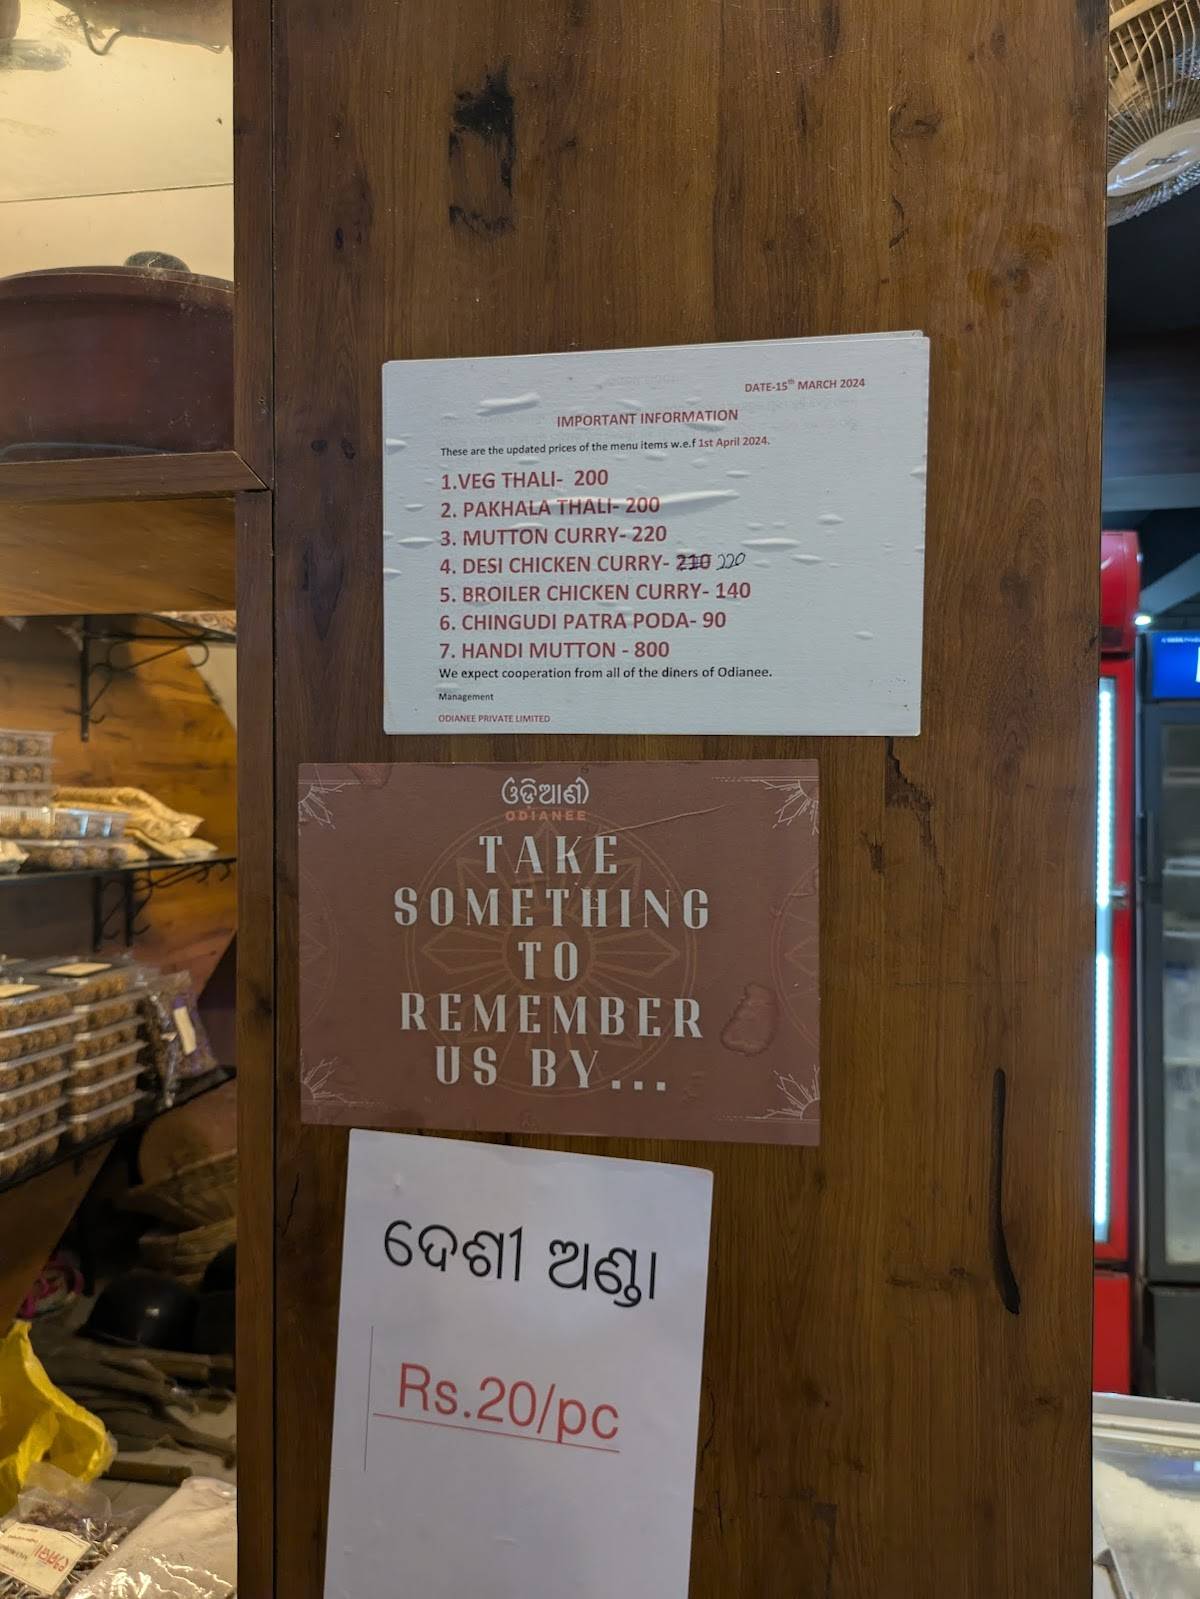 DATE-15th MARCH 2024
IMPORTANT INFORMATION
These are the updated prices of the menu items w.e.f 1st April 2024.
1.VEG THALI- 200
2. PAKHALA THALI- 200
3. MUTTON CURRY- 220
4. DESI CHICKEN CURRY- 210 220
5. BROILER CHICKEN CURRY- 140
6. CHINGUDI PATRA PODA- 90
7. HANDI MUTTON - 800
We expect cooperation from all of the diners of Odianee.
Management
ODIANEE PRIVATE LIMITED
ଓଡ଼ିଆଣୀ
ODIANEE
TAKE
SOMETHING
TO
REMEMBER
US BY...
ଦେଶୀ ଅଣ୍ଡା
Rs.20/pc